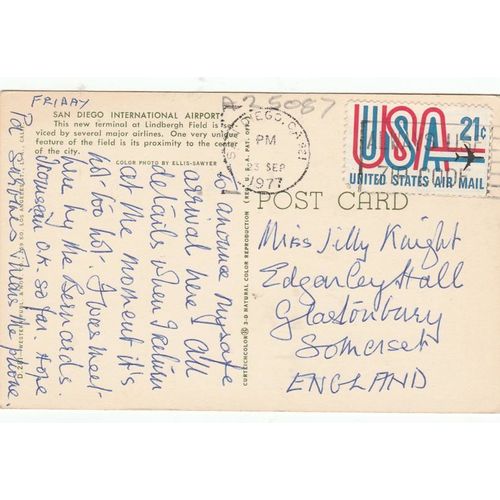 FRIDAY
SAN DIEGO INTERNATIONAL AIRPORT
This new terminal at Lindbergh Field is ser-
viced by several major airlines. One very unique
feature of the field is its proximity to the center
of the city.
COLOR PHOTO BY ELLIS-SAWYER
To announce my safe
arrival here! All
details when I return
At the moment it's
not too hot. I was met
here by the Bernards.
on so far. Hope
means the phone.
CURTEICHCOLOR® 3-D NATURAL COLOR REPRODUCTION
(REG. U.S.A. PAT. OFF.)
A25087
SAN DIEGO, CA 921
PM
23 SEP
1977
USA 21c
UNITED STATES AIR MAIL
ZIP CODE
POST CARD
Miss Jilly Knight
Edgarley Hall
Glastonbury
Somerset
ENGLAND